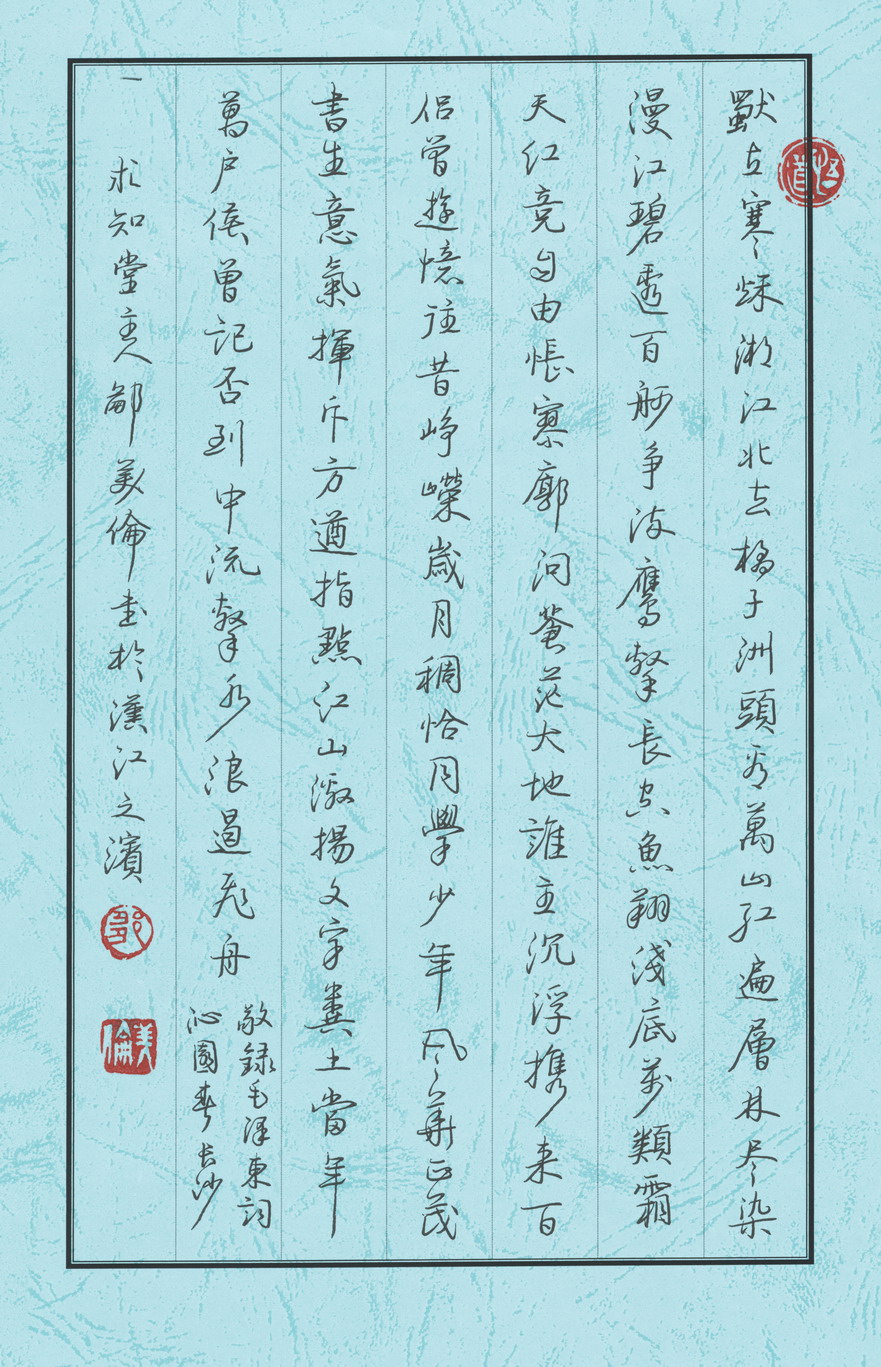 獨立寒秌湘江北去橘子洲頭看萬山红遍層林尽染
漫江碧透百舸争流鹰擊長空魚翔淺底萬類霜
天红竞自由悵寥廓问蒼茫大地誰主沉浮携来百
侣曾遊憶往昔峥嵘歲月稠恰同學少年风華正茂
書生意氣揮斥方遒指點江山激揚文字糞土當年
萬户侯曾記否到中流擊水浪遏飛舟
敬録毛泽東詞
沁園春长沙
求知堂主人鄒美倫書於漢江之濱
鄒
美倫